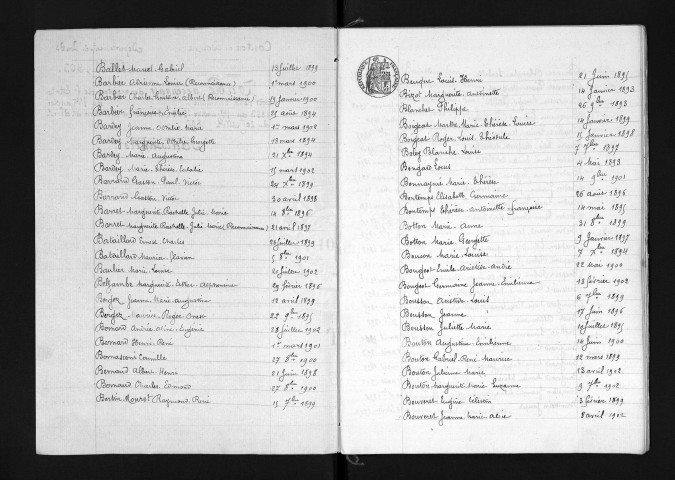 Ballet Marcel Gabriel 13 juillet 1899
Barbier Adrienne Louise (Reconnaissance) 1er mars 1900
Barbier Charles Gustave Albert (Reconnaissance) 19 janvier 1900
Barbier Françoise 25 août 1894
Bardey Jeanne Marie 1er mai 1902
Bardey Marguerite Odile Georgette 13 mars 1894
Bardey Marie Augustine 21 Xbre 1894
Bardey Marie Thérèse Eulalie 15 mars 1902
Barnard Gaston Paul Victor 24 Xbre 1899
Barnard Gaston Victor 30 avril 1898
Barret Marguerite Rachelle Julie Marie 14 8bre 1896
Barret Marguerite Rachelle Julie Marie (Reconnaissance) 21 avril 1897
Bataillard Ernest Charles juillet 1899
Bataillard Maurice Florian 5 8bre 1901
Baulier Marie Louise juillet 1902
Beljambe Marguerite Esther Alphonsine 29 février 1896
Berger Jeanne Marie Augustine 12 avril 1899
Berger Maurice Roger Ernest 22 9bre 1895
Bernard Andrée Alice Eugénie 28 juillet 1902
Bernard Henri René 1er mars 1901
Bernasconi Camille 27 8bre 1900
Bernard Albert Henri 21 juin 1898
Bernard Charles Edmond 27 8bre 1900
Bertin Mourot Raymond René 15 7bre 1899
Beuque Louis Henri 21 Juin 1895
Bizot Marguerite Antoinette 14 Janvier 1893
Blanchet Philippe 26 9bre 1893
Boigeat Marthe Marie Thérèse Louise 14 Janvier 1899
Boigeat Roger Louis Théodule 15 Janvier 1898
Bolez Blanche Louise 7 7bre 1897
Bongard Louis 4 mai 1893
Bonnaque Marie Thérèse 14 9bre 1901
Bontemps Elisabeth Germaine 26 août 1896
Bontemps Thérèse Antoinette Françoise 14 mai 1895
Botton Marie Anne 31 8bre 1899
Botton Marie Georgette 9 Janvier 1897
Bouson Marie Louise 7 Xbre 1894
Bouget Emile Aristide André 22 mai 1900
Bouget Germaine Jeanne Emilienne 13 février 1902
Bousson Aristide Louis 6 7bre 1899
Bousson Jeanne 17 juin 1896
Bousson Juliette Marie 10 juillet 1895
Bouton Augustine Emilienne 14 juin 1900
Bouton Gabriel René Maurice 12 mars 1899
Bouton Julienne Marie 13 avril 1902
Bouton Marguerite Marie Suzanne 9 7bre 1902
Bouveret Eugène Célestin 3 février 1899
Bouveret Jeanne Marie Alice 8 avril 1902